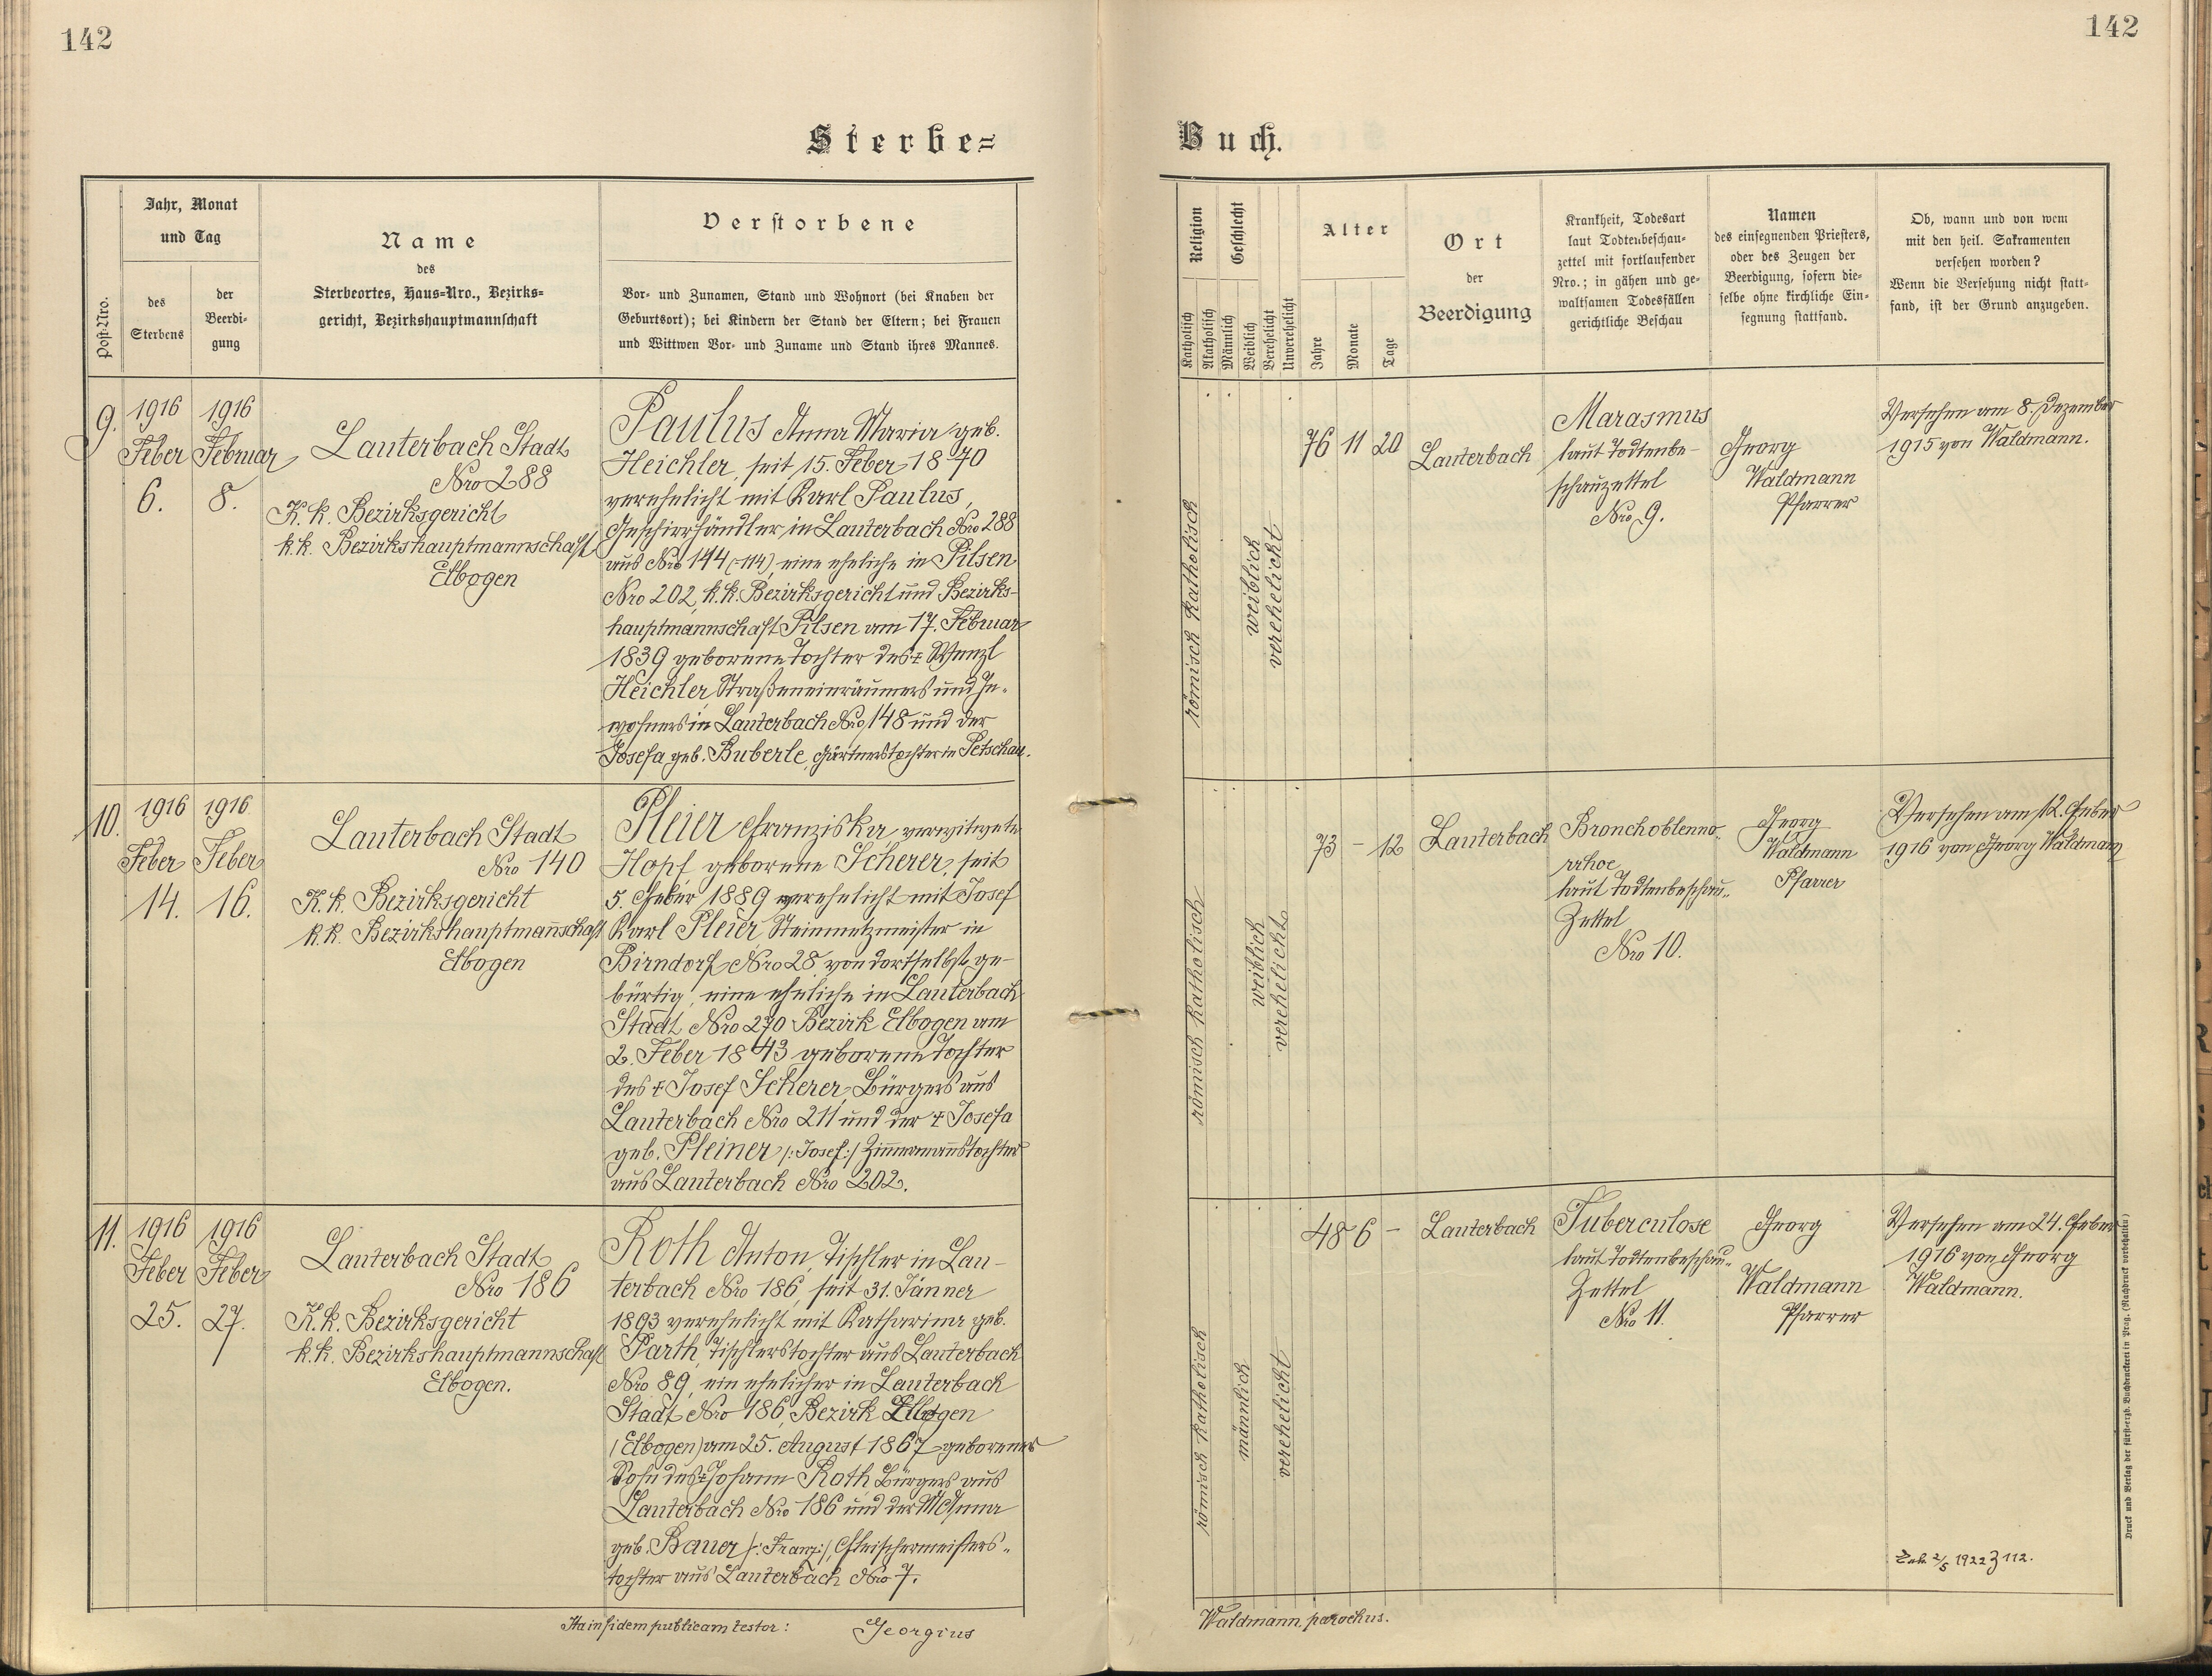 142
142
Sterbe=
Buch.
Post-Nro.
Jahr, Monat
und Tag
des
Sterbens
der
Beerdi-
gung
Name
des
Sterbeortes, Haus-Nro., Bezirks-
gericht, Bezirkshauptmannschaft
Verstorbene
Vor- und Zunamen, Stand und Wohnort (bei Knaben der
Geburtsort); bei Kindern der Stand der Eltern; bei Frauen
und Wittwen Vor- und Zuname und Stand ihres Mannes.
Religion
Katholisch
Akatholisch
Geschlecht
Männlich
Weiblich
Verehelicht
Unverehelicht
Alter
Jahre
Monate
Tage
Ort
der
Beerdigung
Krankheit, Todesart
laut Todtenbeschau-
zettel mit fortlaufender
Nro.; in gähen und ge-
waltsamen Todesfällen
gerichtliche Beschau
Namen
des einsegnenden Priesters,
oder des Zeugen der
Beerdigung, sofern die-
selbe ohne kirchliche Ein-
segnung stattfand.
Ob, wann und von wem
mit den heil. Sakramenten
versehen worden?
Wenn die Versehung nicht statt-
fand, ist der Grund anzugeben.
9.
1916
Feber
6.
1916
Februar
8.
Lauterbach Stadt
Nro 288
K. k. Bezirksgericht
k.k. Bezirkshauptmannschaft
Elbogen
Paulus Anna Maria geb.
Heichler, seit 15. Feber 1870
verehelicht mit Karl Paulus,
Geschirrhändler in Lauterbach Nro 288
aus Nro 144 (-114), eine eheliche in Pilsen
Nro 202, k.k. Bezirksgericht und Bezirks-
hauptmannschaft Pilsen am 17. Februar
1839 geborene Tochter des † Wenzl
Heichler, Straßeneinräumers und In-
wohners in Lauterbach Nro 148 und der
Josefa geb. Buberle, Gärtnerstochter in Petschau.
römisch katholisch
weiblich
verehelicht
76 11 20
Lauterbach
Marasmus
laut Todtenbe-
schauzettel
Nro 9.
Georg
Waldmann
Pfarrer
Versehen am 8. Dezember
1915 von Waldmann.
10.
1916
Feber
14.
1916
Feber
16.
Lauterbach Stadt
Nro 140
K. k. Bezirksgericht
k.k. Bezirkshauptmanschaft
Elbogen
Pleier Franziska, verwitwete
Hopf geborene Scherer, seit
5. Feber 1889 verehelicht mit Josef
Karl Pleier Steinmetzmeister in
Birndorf Nro 28 von dortselbst ge-
bürtig, eine eheliche in Lauterbach
Stadt Nro 270 Bezirk Elbogen am
2. Feber 1843 geborene Tochter
des † Josef Scherer, Bürgers aus
Lauterbach Nro 211 und der † Josefa
geb. Pleiner /: Josef :/ Zimermanstochter
aus Lauterbach Nro 202.
römisch katholisch
weiblich
verehelicht
73 – 12
Lauterbach
Bronchoblenno-
rrhoe
laut Todtenbeschau-
Zettel
Nro 10.
Georg
Waldmann
Pfarrer
Versehen am 12. Feber
1916 von Georg Waldmann
11.
1916
Feber
25.
1916
Feber
27.
Lauterbach Stadt
Nro 186
K. k. Bezirksgericht
k.k. Bezirkshauptmannschaft
Elbogen.
Roth Anton, Tischler in Lau-
terbach Nro 186, seit 31. Jänner
1893 verehelicht mit Katharina geb.
Parth, Tischlerstochter aus Lauterbach
Nro 89, ein ehelicher in Lauterbach
Stadt Nro 186, Bezirk Elbogen
(Elbogen) am 25. August 1867 geborener
Sohn des † Johann Roth Bürgers aus
Lauterbach Nro 186 und der M. Anna
geb. Bauer /: Franz :/, Fleischermeisters-
tochter aus Lauterbach Nro 7.
römisch katholisch
männlich
verehelicht
48 6 –
Lauterbach
Tuberculose
laut Todtenbeschau-
Zettel
Nro 11.
Georg
Waldmann
Pfarrer
Versehen am 24. Feber
1916 von Georg
Waldmann.
2/5 1922 Z 112.
Ita in fidem publicam testor: Georgius
Waldmann, parochus.
Druck und Verlag der fürst-erzb. Buchdruckerei in Prag. (Nachdruck vorbehalten)